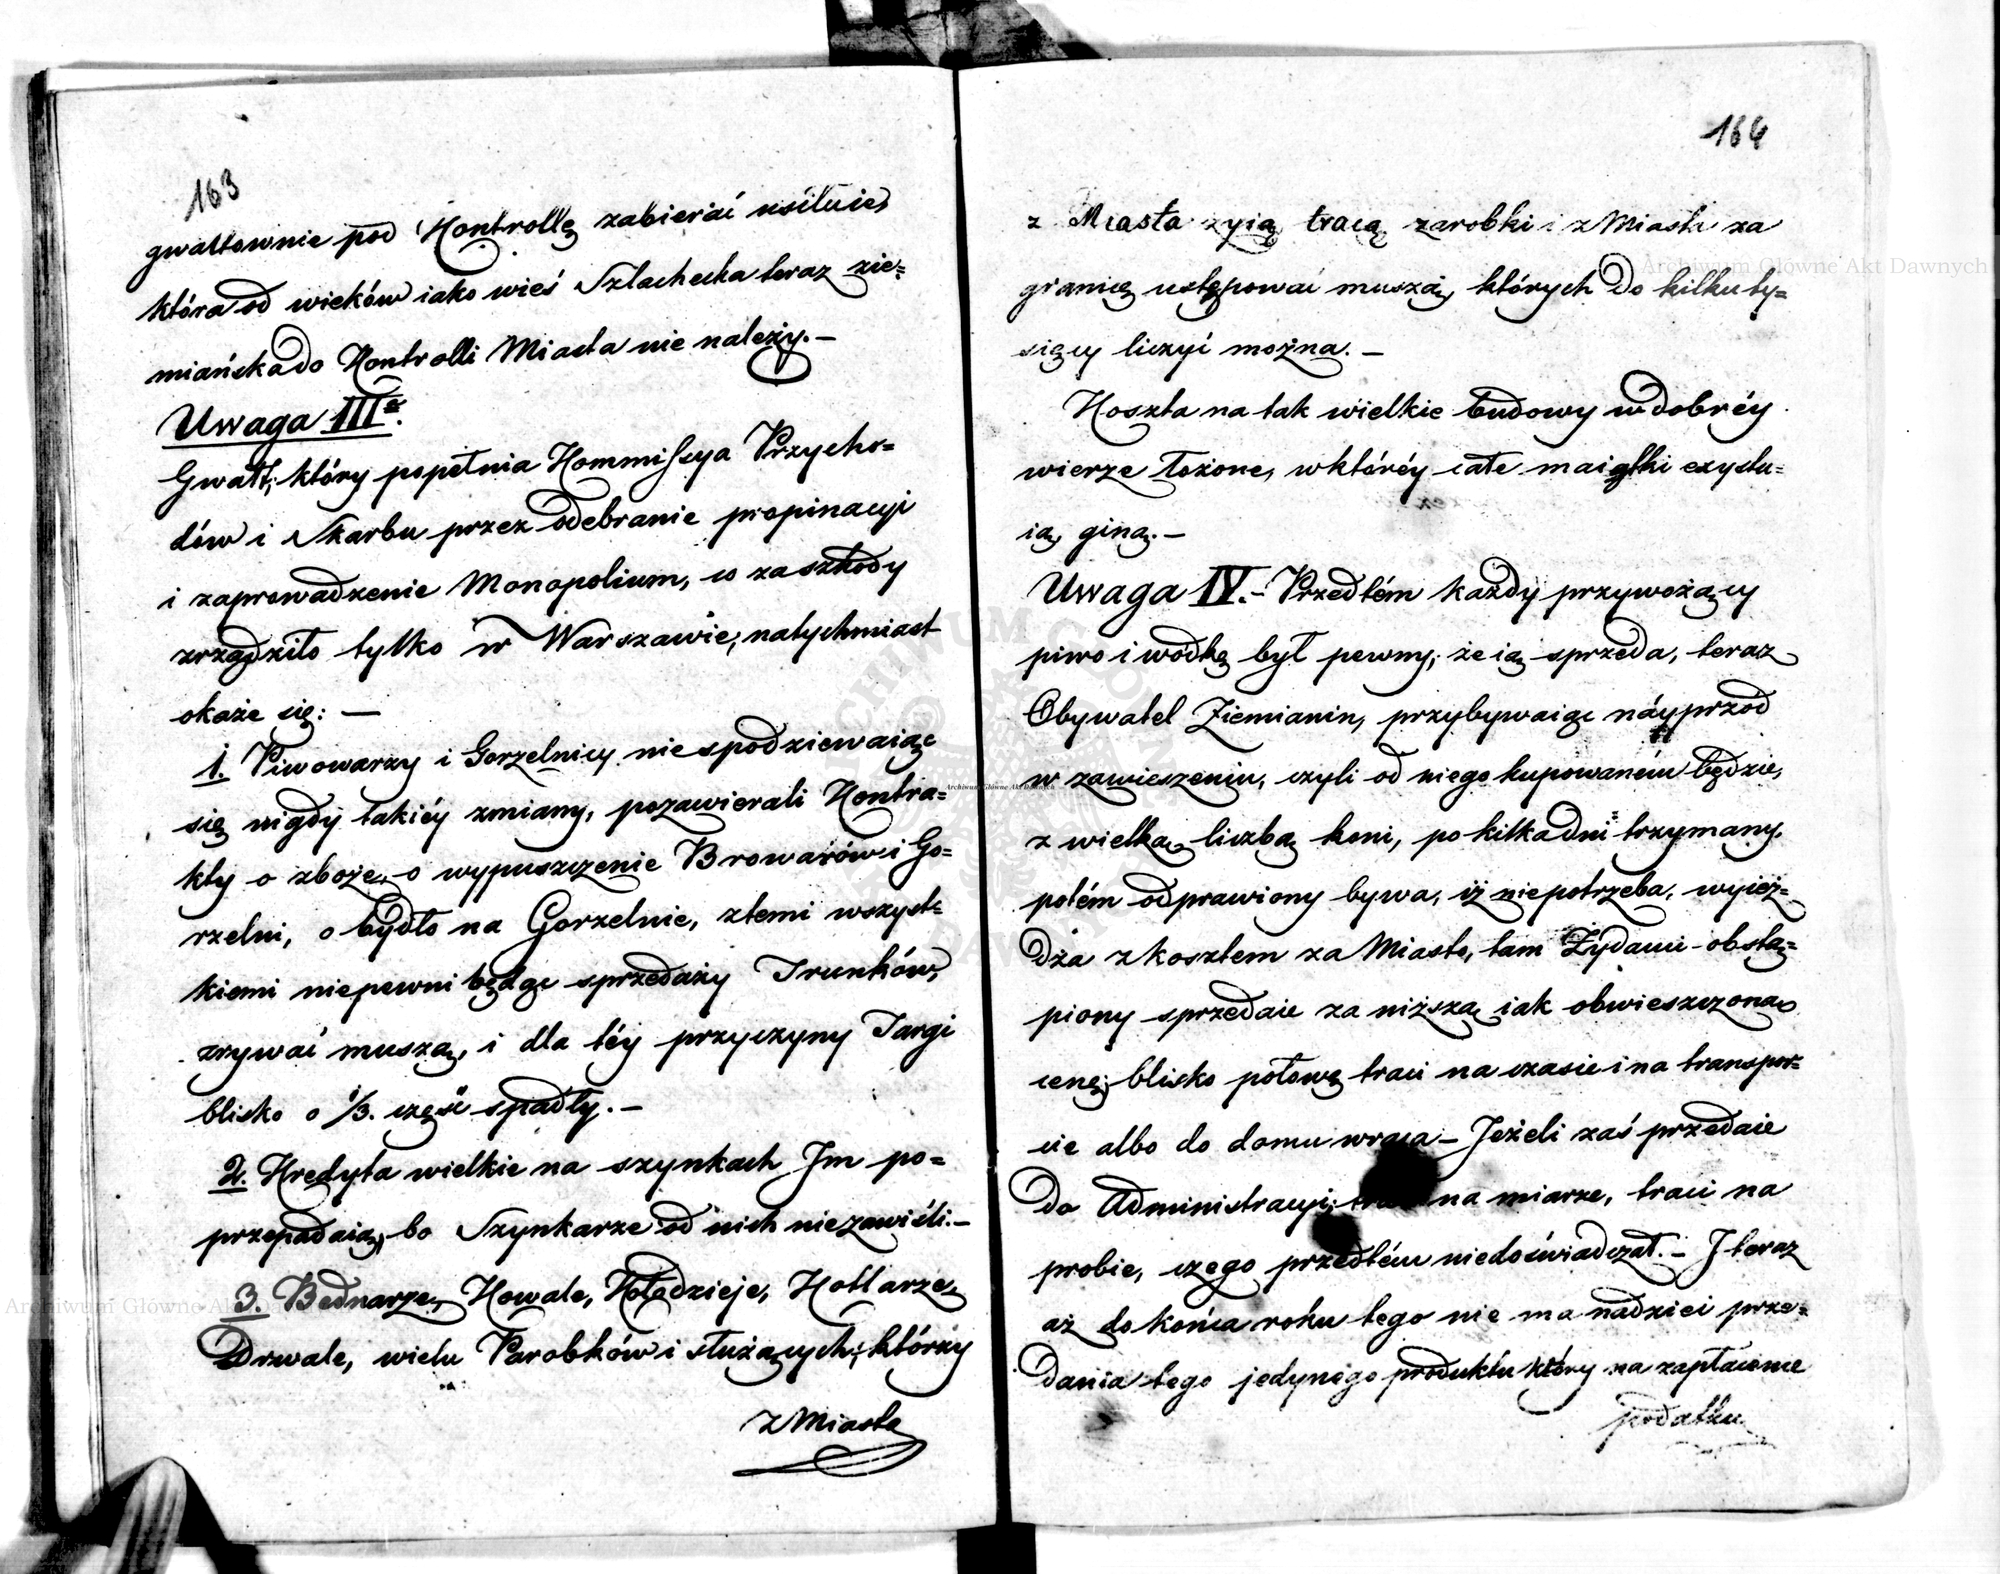 163
gwałtownie pod Kontrollę zabierać usiłuie,
która od wieków iako wieś Szlachecka teraz zie=
miańska do Kontrolli Miasta nie należy.—
Uwaga IIIa.
Gwałt, który popełnia Kommissya Przycho=
dów i Skarbu przez odebranie propinacyi
i zaprowadzenie Monopolium, co za szkody
zrządziło tylko w Warszawie, natychmiast
okaże się: —
1. Piwowarzy i Gorzelnicy nie spodziewaiąc
się nigdy takiéy zmiany, pozawierali Kontra=
kty o zboże, o wypuszczenie Browarów i Go=
rzelni, o bydło na Gorzelnie, z temi wszyst=
kiemi niepewni będąc sprzedaży Trunków,
zrywać muszą, i dla téy przyczyny Targi
blisko o 1/3. część spadły.—
2. Kredyta wielkie na szynkach Jm po=
przepadaią, bo Szynkarze od nich nie zawiśli.—
3. Bednarze, Kowale, Kołodzieje, Kotlarze,
Drwale, wielu Parobków i służących, którzy
z Miasta
164
z Miasta żyią tracą zarobki i z Miasta za
granicę ustępować muszą, których do kilku ty=
sięcy liczyć można.—
Koszta na tak wielkie budowy w dobréy
wierze łożone, w któréy całe maiątki czystu=
ią, giną.—
Uwaga IV.— Przedtém każdy przywożący
piwo i wódkę był pewny, że ią sprzeda, teraz
Obywatel Ziemianin, przybywaiąc náyprzód
w zawieszeniu, czyli od niego kupowaném będzie,
z wielką liczbą koni, po kilka dni trzymany,
potém odprawiony bywa, iż niepotrzeba, wyież=
dża z kosztem za Miasto, tam Żydami obstą=
piony sprzedaie za niższą iak obwieszczona
cenę; blisko połowę traci na czasie i na transpor=
cie albo do domu wraca— Jeżeli zaś przedaie
do Administracyi, na miarze, traci na
probie, czego przedtém niedoświadczał.— J teraz
aż do końca roku tego nie ma nadziei prze=
dania tego jedynego produktu który na zapłacenie
podatku
Archiwum Główne Akt Dawnych
Archiwum Główne Akt Dawnych